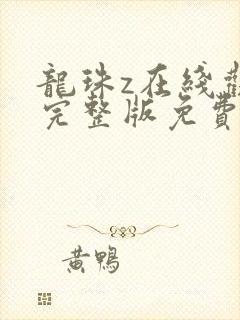 龍珠z在綫觀
完整版免費
黃鴨